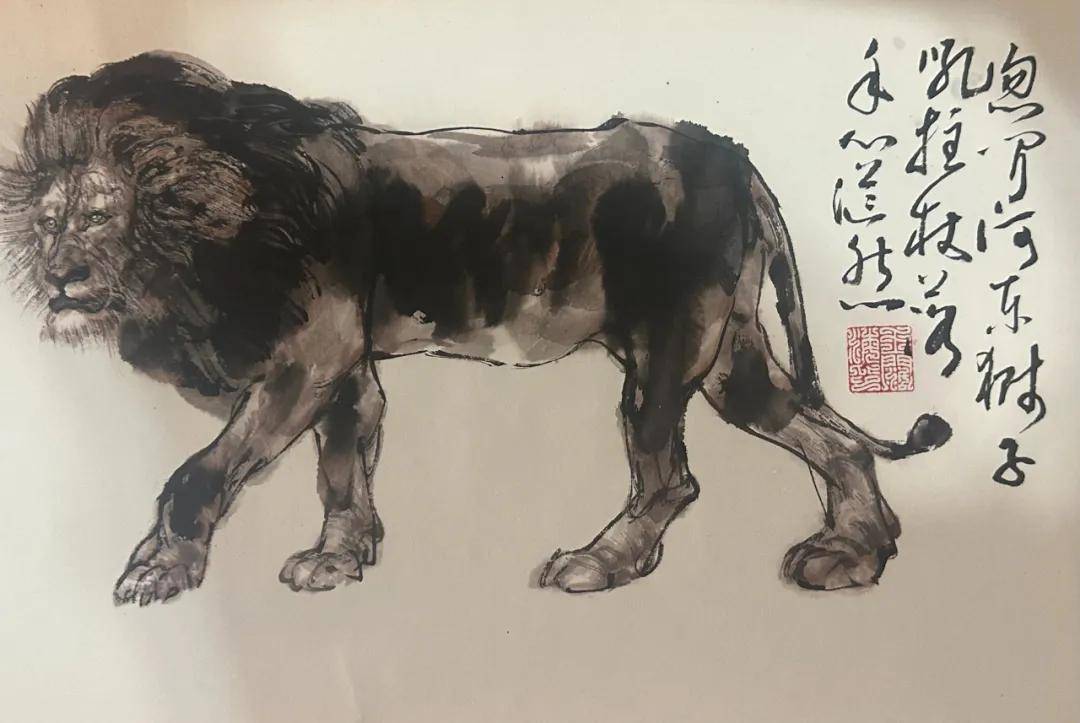 忽闻河东狮子
吼拄杖落
手心茫然